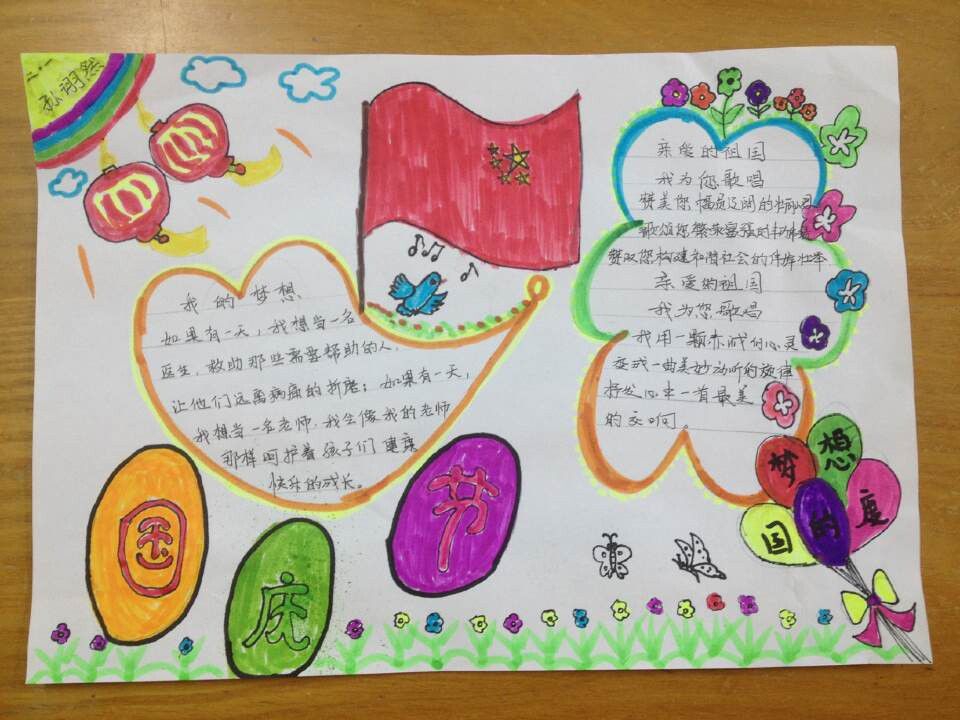 二.一
孙翊然
我的梦想
如果有一天，我想当一名
医生，救助那些需要帮助的人，
让他们远离病痛的折磨；如果有一天，
我想当一名老师，我会像我的老师
那样呵护着孩子们健康
快乐的成长。
亲爱的祖国
我为您歌唱
赞美您幅员辽阔的壮丽
歌颂您繁荣富强的
赞叹您构建和谐社会的伟岸壮举
亲爱的祖国
我为您歌唱
我用一颗赤诚的心灵
变成一曲美妙动听的旋律
抒发心中一首最美
的交响。
国庆节
梦想
国的度